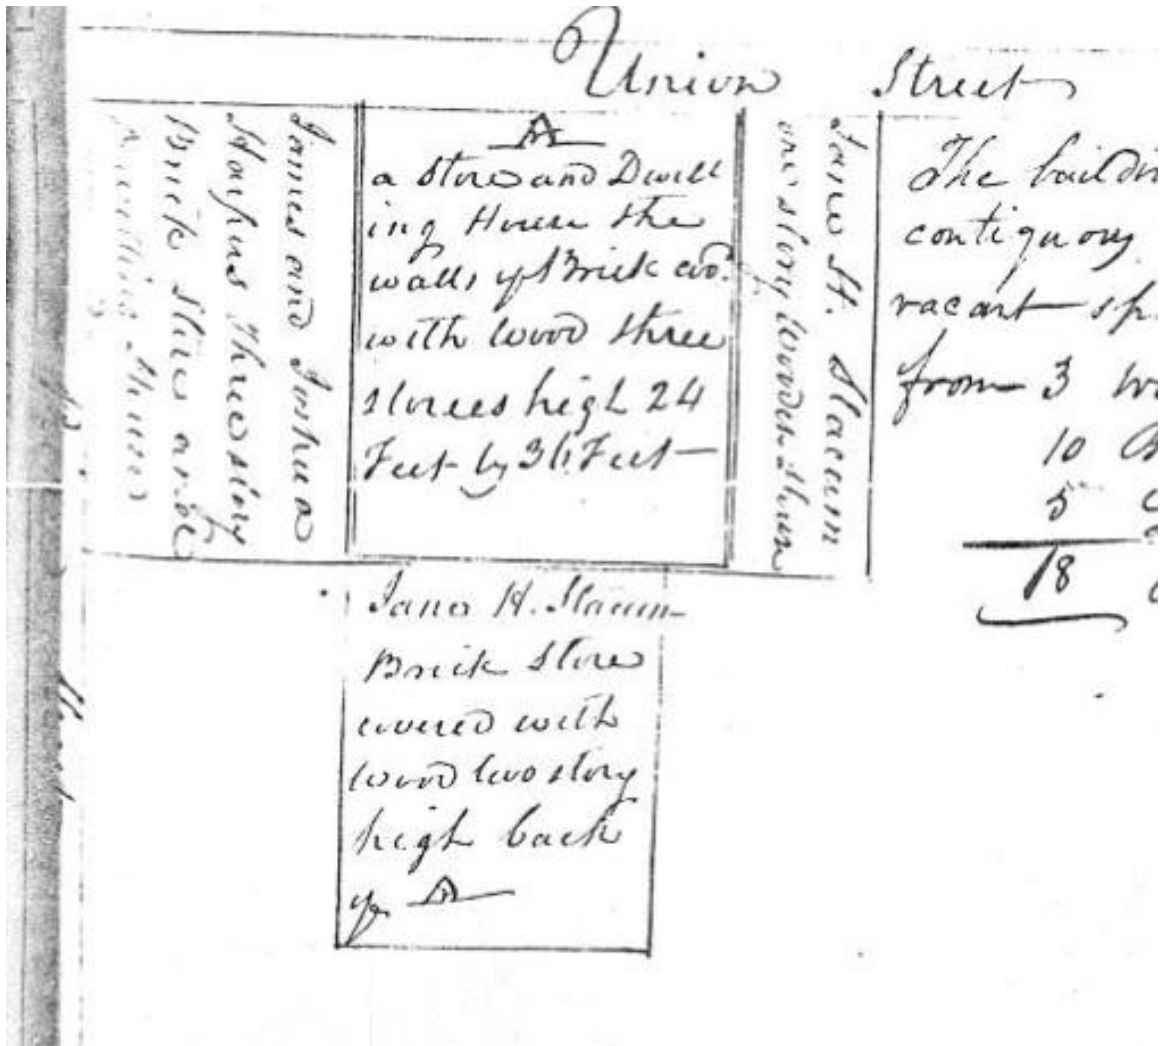 Union Street
James and Joshua
Three story
Brick Store and
Dwelling House
A
a Store and Dwell
ing House the
walls of Brick cov.d
with wood three
stories high 24
Feet by 36 Feet
Jane H. Slacum
one story wooden House
The buildin
contiguous
vacant sp
from 3 wo
10
5
18
Jane H. Slacum
Brick Store
covered with
wood two story
high back
of A